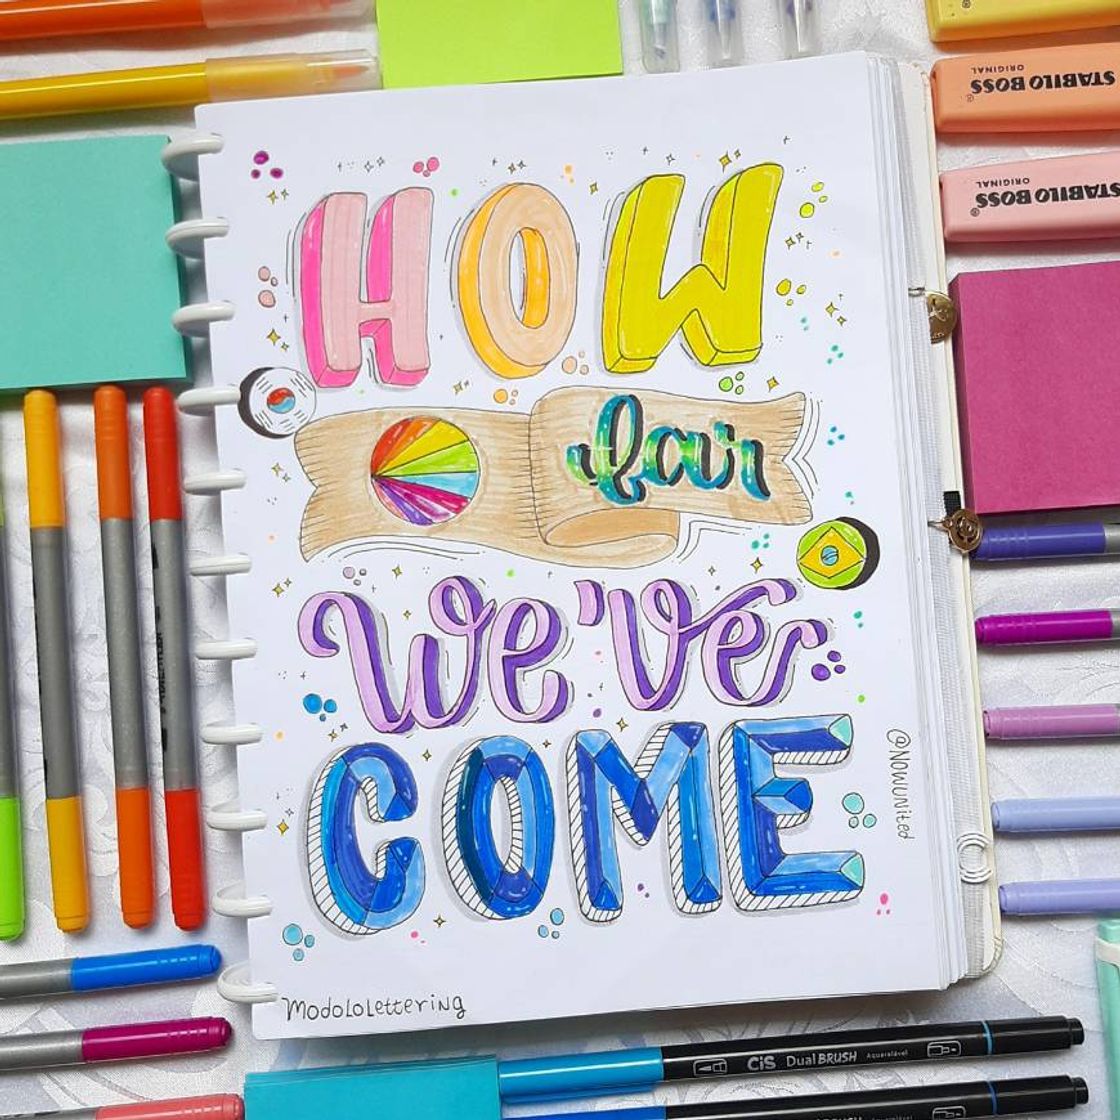 HOW
far
we've
COME
@NOWUNited
ModoloLettering
STABILO BOSS
ORIGINAL
STABILO BOSS
ORIGINAL
CiS Dual BRUSH Aquarelável
Dual BRUSH